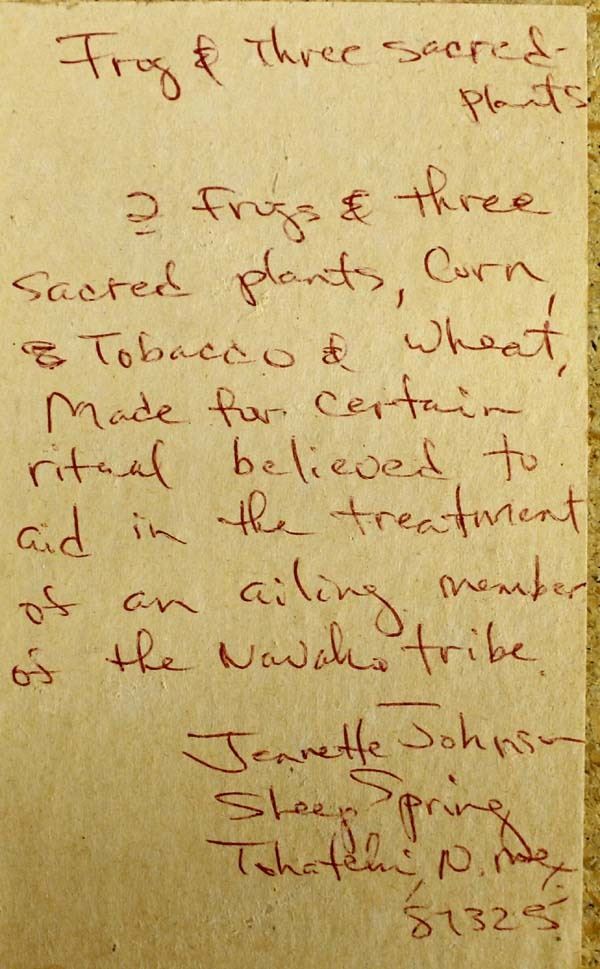 Frog & Three sacred
plants
2 Frogs & three
Sacred plants, Corn,
& Tobacco & wheat,
Made for certain
ritual believed to
aid in the treatment
of an ailing member
of the Navaho tribe.
Jeanette Johnson
Sheep Spring
Tohatchi, N. Mex.
87325